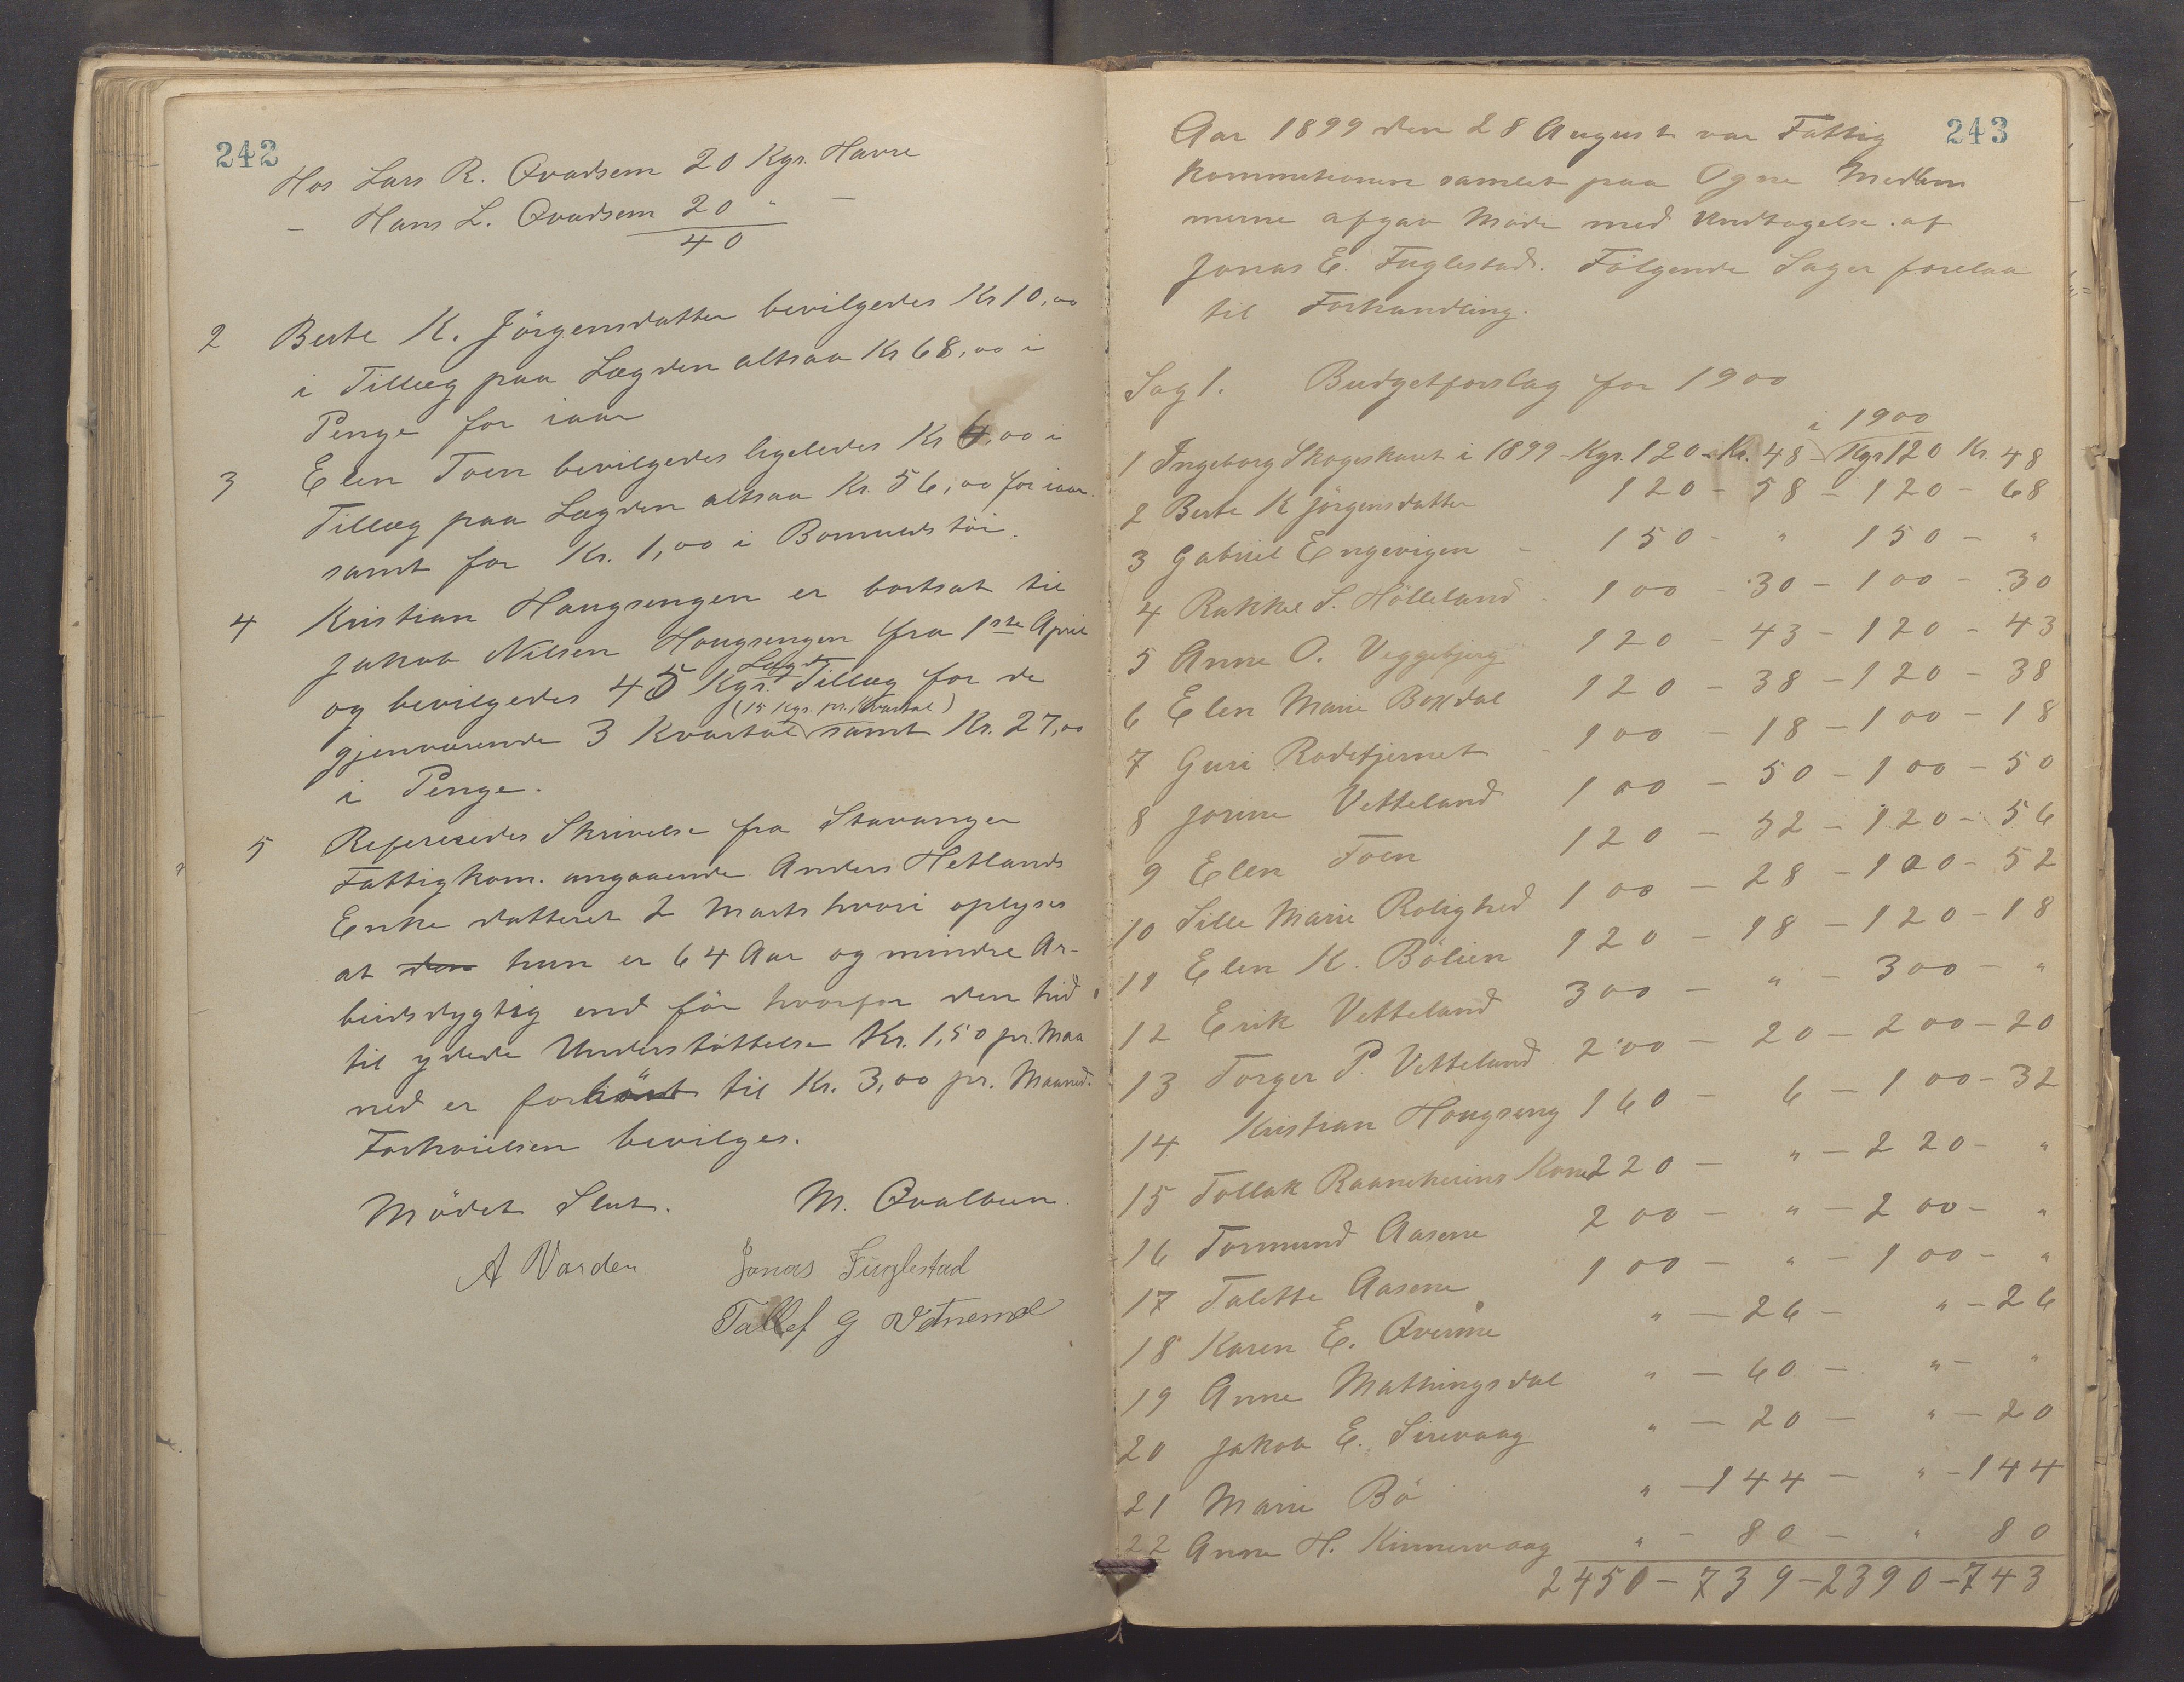 242
Hos Lars R. Qvadsem 20 Kgr. Havre
– Hans L. Qvadsem 20 " –
40
2 Berte K. Jörgensdatter bevilgedes Kr 10,00
i Tillæg paa Lægden altsaa Kr 68,00 i
Penge for iaar
3 Elen Toen bevilgedes ligeledes Kr 4,00 i
Tillæg paa Lægden altsaa Kr. 56,00 for iaar.
samt for Kr. 1,00 i Bomuldstöi.
4 Kristian Hougsengen er bortsat til
Jakob Nilsen Hougsengen fra 1ste April
og bevilgedes 45 Kgr. Lægds Tillæg for de
(15 Kgr. pr. Kvartal)
gjenværende 3 Kvartal samt Kr. 27,00
i Penge.
5 Refereredes Skrivelse fra Stavanger
Fattigkom. angaaende Anders Hetlands
Enke datteret 2 Marts hvori oplyses
at den hun er 64 Aar og mindre Ar-
beidsdygtig end för hvorfor den hid
til ydede Understöttelse Kr. 1,50 pr. Maa
ned er forhöiet til Kr. 3,00 pr. Maaned.
Forhöielsen bevilges.
Mödet Slut. M. Qvalbein
A Varden Jonas Fuglestad
Tallef G Vetnemoe
243
Aar 1899 den 28 August var Fattig
kommisionen samlet paa Ogne Medlem
merne afgav Möde med Undtagelse af
Jonas E. Fuglestad. Fölgende Sager forelaa
til Forhandling.
Sag 1. Budgetforslag for 1900
i 1900
1 Ingeborg Skogeskaret i 1899 - Kgr. 120 - Kr. 48 - Kgr 120 Kr. 48
2 Berte K Jörgensdatter 120 - 58 - 120 - 68
3 Gabriel Engevigen - 150 - " 150 - "
4 Rakkel S. Hölleland - 100 - 30 - 100 - 30
5 Anne O. Veggebjerg 120 - 43 - 120 - 43
6 Elen Marie Boxdal 120 - 38 - 120 - 38
7 Guri Rodetjernet - 100 - 18 - 100 - 18
8 Jorine Vetteland 100 - 50 - 100 - 50
9 Elen Toen 120 - 52 - 120 - 56
10 Sille Marie Rolighed 100 - 28 - 100 - 52
11 Elen K. Bölien 120 - 18 - 120 - 18
12 Erik Vetteland 300 - " - 300 - "
13 Torger P. Vetteland 200 - 20 - 200 - 20
14 Kristian Hougseng 160 - 6 - 100 - 32
15 Tollak Raunekleivs Kone 220 - " - 220 - "
16 Tormund Aasene 200 - " - 200 - "
17 Talette Aasene 100 - " - 100 - "
18 Karen E. Qverme " - 26 - " - 26
19 Anne Mathingsdal " - 60 - " - "
20 Jakob E. Sirevaag " - 20 - " - 20
21 Marie Bö " - 144 - " - 144
22 Anne H. Kinnervaag " - 80 - " 80
2450 - 739 - 2390 - 743